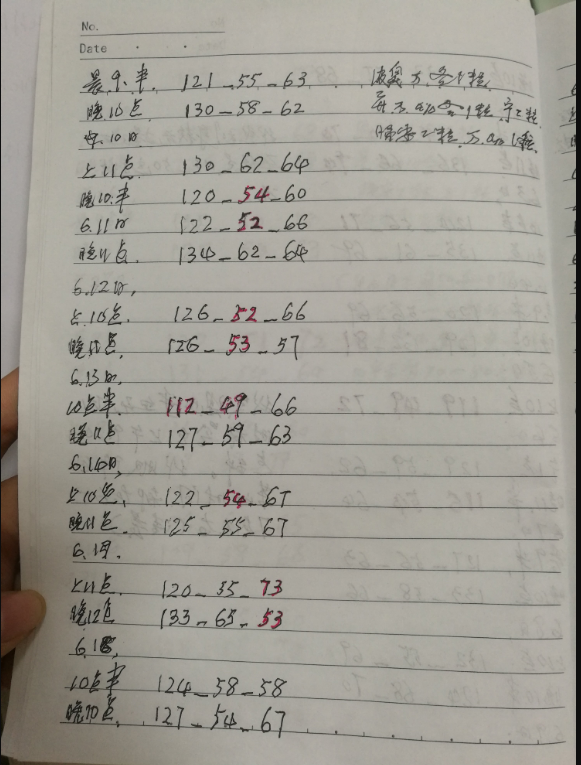 No.
Date
晨9.半 121-55-63
各1粒
晚10点 130-58-62
各1粒
10日
上11点. 130-62-64
2粒
晚10.半 120-54-60
6.11日 122-52-66
晚11点. 134-62-64
6.12日,
上10点. 126-52-66
晚10点. 126-53-57
6.13日.
10点半. 112-49-66
晚11点. 127-59-63
6.14日,
上10点, 122-54-67
晚11点. 125-55-67
上11点. 120-55-73
晚12点 133-65-53
10点半 124-58-58
晚10点. 127-54-67